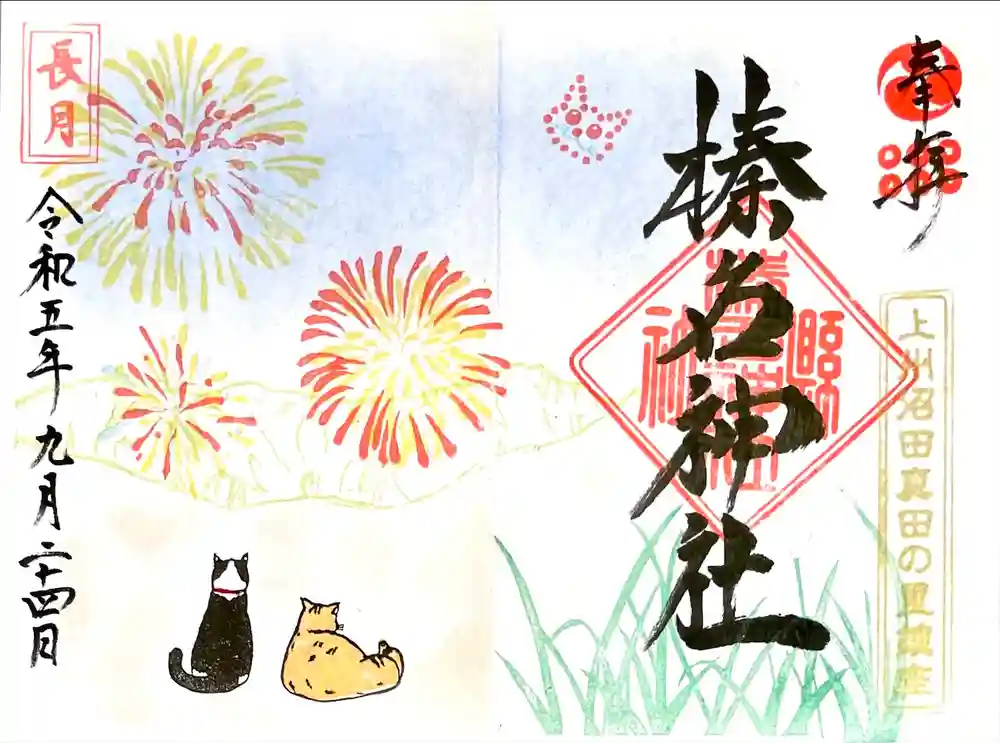 奉拝
上州沼田真田の里鎮座
榛名神社
長月
令和五年九月二十四日